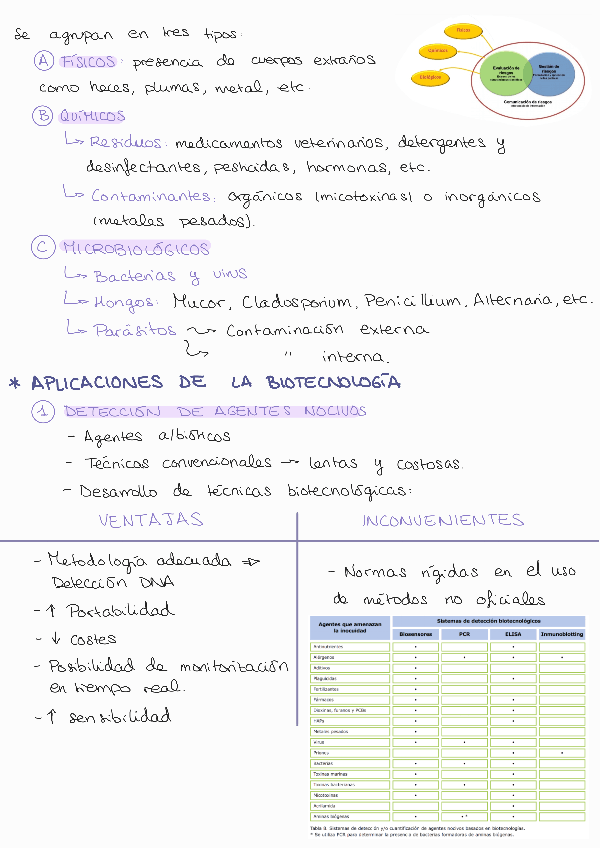 Se agrupan en tres tipos:
A FÍSICOS: presencia de cuerpos extraños
como heces, plumas, metal, etc.
Físicos
Químicos
Biológicos
Evaluación de
riesgos
Gestión de
riesgos
Comunicación de riesgos
B QUÍMICOS
↳ Residuos: medicamentos veterinarios, detergentes y
desinfectantes, pesticidas, hormonas, etc.
↳ Contaminantes: orgánicos (micotoxinas) o inorgánicos
(metales pesados).
C MICROBIOLÓGICOS
↳ Bacterias y virus
↳ Hongos: Mucor, Cladosporium, Penicillium, Alternaria, etc.
↳ Parásitos → Contaminación externa
↳ " interna.
* APLICACIONES DE LA BIOTECNOLOGÍA
1 DETECCIÓN DE AGENTES NOCIVOS
- Agentes a/bióticos
- Técnicas convencionales → lentas y costosas.
- Desarrollo de técnicas biotecnológicas:
VENTAJAS
- Metodología adecuada ⇒
Detección DNA
- ↑ Portabilidad
- ↓ costes
- Posibilidad de monitorización
en tiempo real.
- ↑ sensibilidad
INCONVENIENTES
- Normas rígidas en el uso
de métodos no oficiales
Agentes que amenazan
la inocuidad
Sistemas de detección biotecnológicos
Biosensores PCR ELISA Inmunoblotting
Antinutrientes • •
Alérgenos • • • •
Aditivos •
Plaguicidas • •
Fertilizantes •
Fármacos • •
Dioxinas, furanos y PCBs • •
HAPs • •
Metales pesados •
Virus • • •
Priones • •
Bacterias • • •
Toxinas marinas • •
Toxinas bacterianas • • •
Micotoxinas • •
Acrilamida •
Aminas biógenas • •* •
Tabla 8. Sistemas de detección y/o cuantificación de agentes nocivos basados en biotecnologías.
* Se utiliza PCR para determinar la presencia de bacterias formadoras de aminas biógenas.